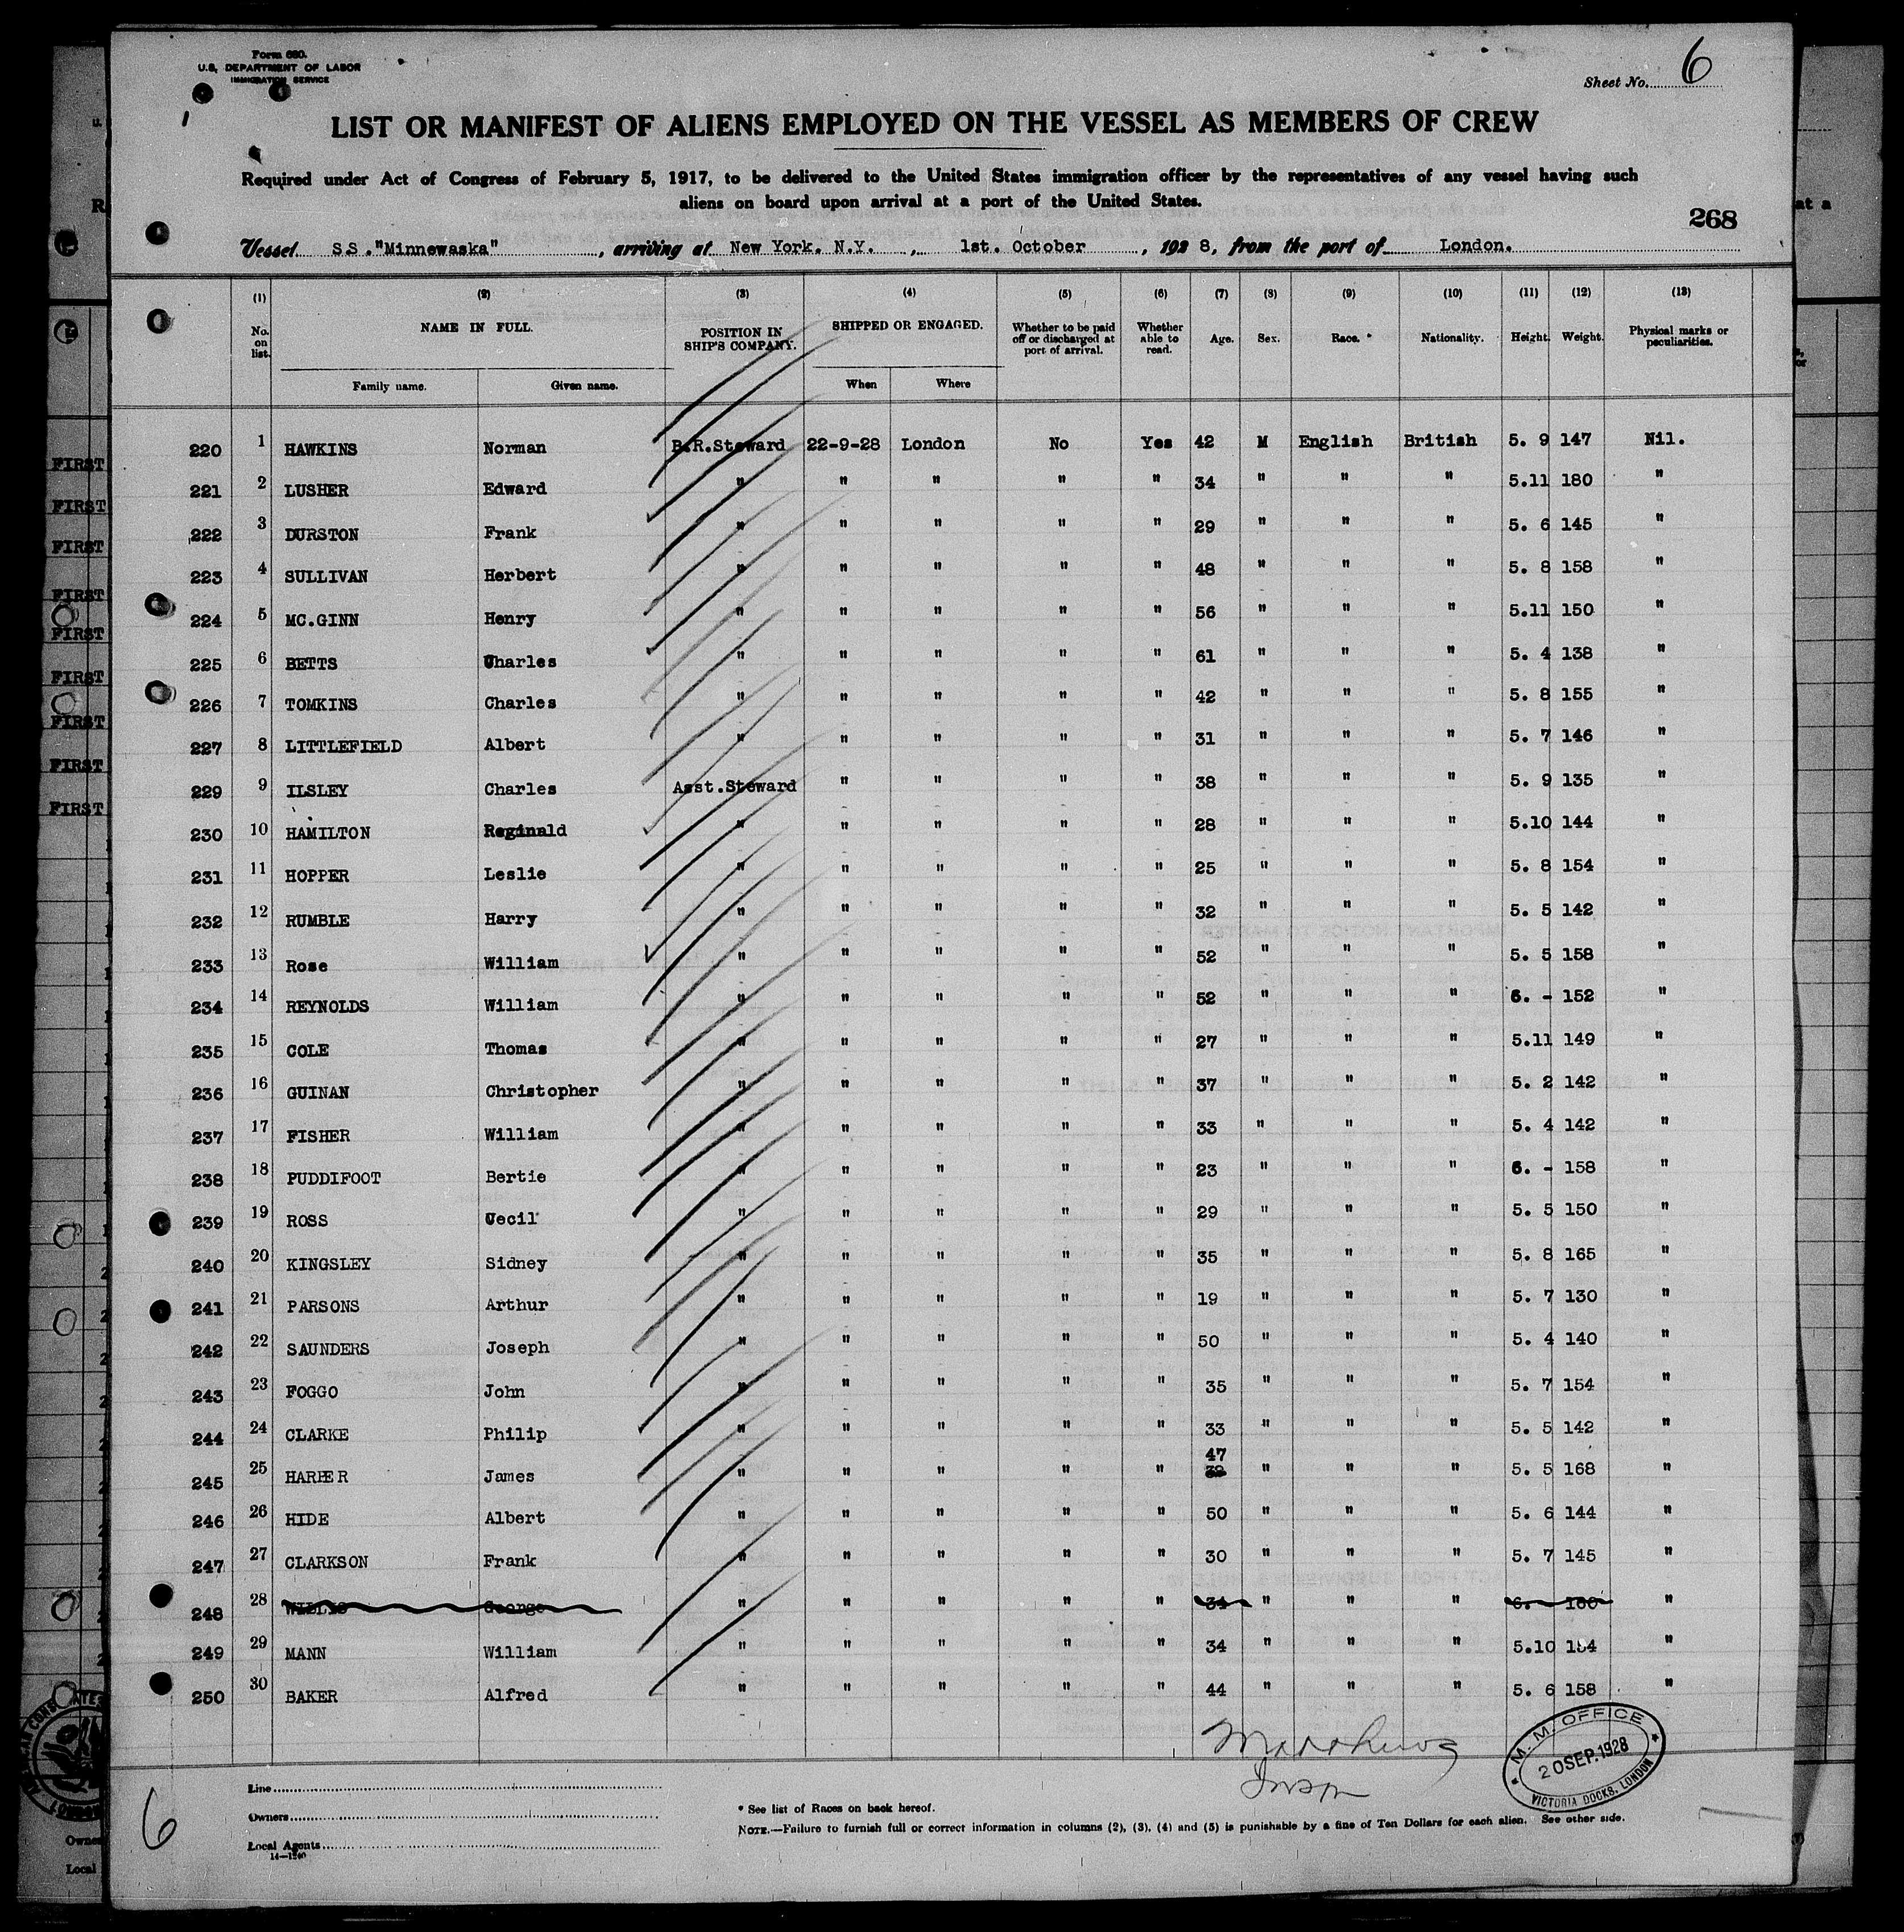 Form 680.
U.S. DEPARTMENT OF LABOR
IMMIGRATION SERVICE
Sheet No. 6
LIST OR MANIFEST OF ALIENS EMPLOYED ON THE VESSEL AS MEMBERS OF CREW
Required under Act of Congress of February 5, 1917, to be delivered to the United States immigration officer by the representatives of any vessel having such
aliens on board upon arrival at a port of the United States.
268
Vessel S.S."Minnewaska", arriving at New York. N.Y., 1st. October, 1928, from the port of London.
(1) (2) (3) (4) (5) (6) (7) (8) (9) (10) (11) (12) (13)
No. on list. NAME IN FULL. POSITION IN SHIP'S COMPANY. SHIPPED OR ENGAGED. Whether to be paid off or discharged at port of arrival. Whether able to read. Age. Sex. Race.* Nationality. Height. Weight. Physical marks or peculiarities.
Family name. Given name. When Where
220 1 HAWKINS Norman B.R.Steward 22-9-28 London No Yes 42 M English British 5. 9 147 Nil.
221 2 LUSHER Edward " " " " " 34 " " " 5.11 180 "
222 3 DURSTON Frank " " " " " 29 " " " 5. 6 145 "
223 4 SULLIVAN Herbert " " " " " 48 " " " 5. 8 158 "
224 5 MC.GINN Henry " " " " " 56 " " " 5.11 150 "
225 6 BETTS Charles " " " " " 61 " " " 5. 4 138 "
226 7 TOMKINS Charles " " " " " 42 " " " 5. 8 155 "
227 8 LITTLEFIELD Albert " " " " " 31 " " " 5. 7 146 "
229 9 ILSLEY Charles Asst.Steward " " " " 38 " " " 5. 9 135 "
230 10 HAMILTON Reginald " " " " " 28 " " " 5.10 144 "
231 11 HOPPER Leslie " " " " " 25 " " " 5. 8 154 "
232 12 RUMBLE Harry " " " " " 32 " " " 5. 5 142 "
233 13 Rose William " " " " " 52 " " " 5. 5 158 "
234 14 REYNOLDS William " " " " " 52 " " " 6. - 152 "
235 15 COLE Thomas " " " " " 27 " " " 5.11 149 "
236 16 GUINAN Christopher " " " " " 37 " " " 5. 2 142 "
237 17 FISHER William " " " " " 33 " " " 5. 4 142 "
238 18 PUDDIFOOT Bertie " " " " " 23 " " " 6. - 158 "
239 19 ROSS Cecil " " " " " 29 " " " 5. 5 150 "
240 20 KINGSLEY Sidney " " " " " 35 " " " 5. 8 165 "
241 21 PARSONS Arthur " " " " " 19 " " " 5. 7 130 "
242 22 SAUNDERS Joseph " " " " " 50 " " " 5. 4 140 "
243 23 FOGGO John " " " " " 35 " " " 5. 7 154 "
244 24 CLARKE Philip " " " " " 33 " " " 5. 5 142 "
245 25 HARPER James " " " " " 47 " " " 5. 5 168 "
246 26 HIDE Albert " " " " " 50 " " " 5. 6 144 "
247 27 CLARKSON Frank " " " " " 30 " " " 5. 7 145 "
248 28 WILLIS George " " " " " 34 " " " 6. - 160 "
249 29 MANN William " " " " " 34 " " " 5.10 "
250 30 BAKER Alfred " " " " " 44 " " " 5. 6 158 "
M. M. OFFICE
20 SEP. 1928
VICTORIA DOCKS, LONDON
6
Line
Owners
Local Agents
14-1240
* See list of Races on back hereof.
NOTE.—Failure to furnish full or correct information in columns (2), (3), (4) and (5) is punishable by a fine of Ten Dollars for each alien. See other side.
FIRST
FIRST
FIRST
FIRST
FIRST
FIRST
FIRST
FIRST
FIRST